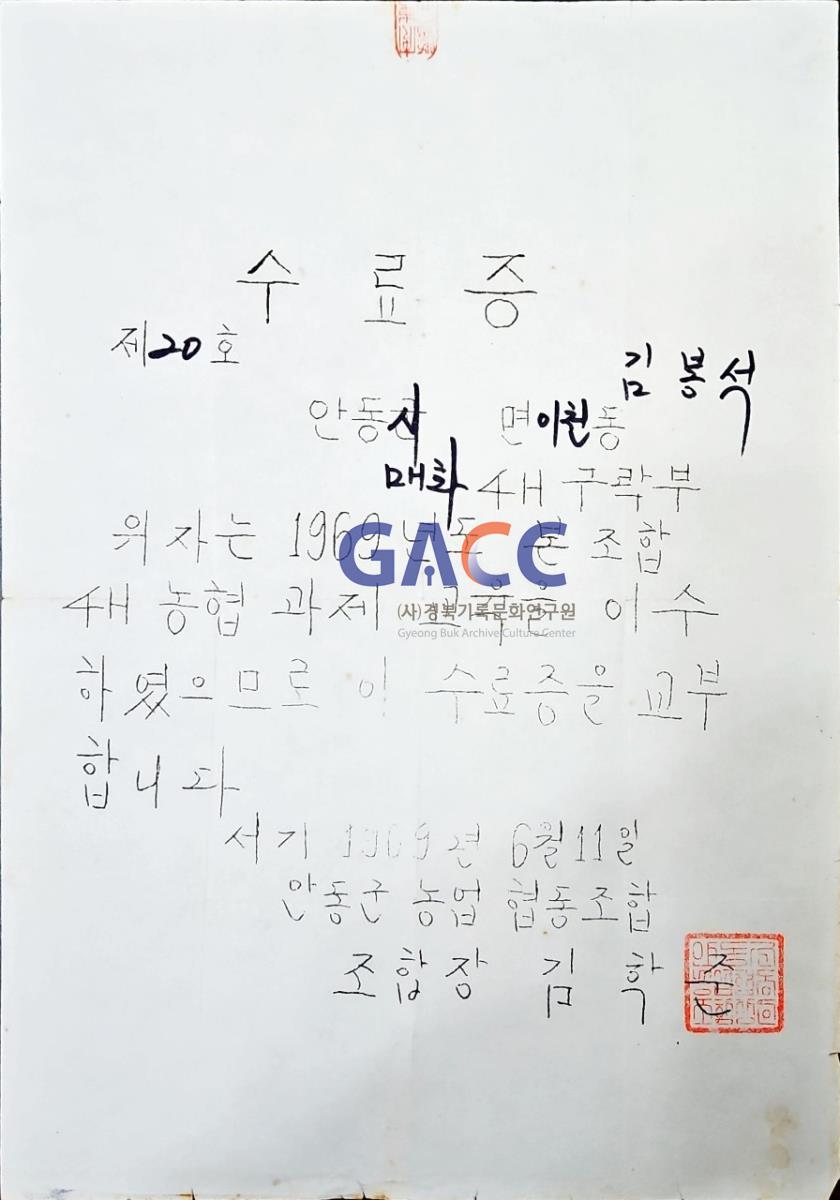 수료증
제20호
김봉석
안동시 면이천동
매화 4H 구락부
위자는 1969년도 본 조합
4H 농협 과제 교육을 이수
하였으므로 이 수료증을 교부
합니다
서기 1969년 6월11일
안동군 농업 협동조합
조합장 김학준
GACC
(사)경북기록문화연구원
Gyeong Buk Archive Culture Center